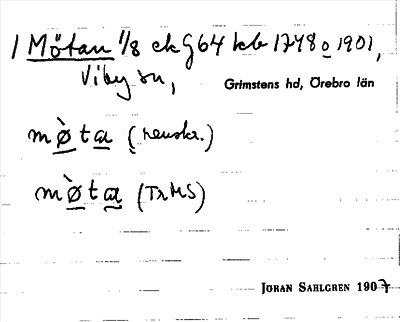 1 Mötan 1/8 ek G64 kb 1748 o 1901,
Viby sn,
Grimstens hd, Örebro län
mø̀ta (renskr.)
mø̀ta (TRMS)
JÖRAN SAHLGREN 1907